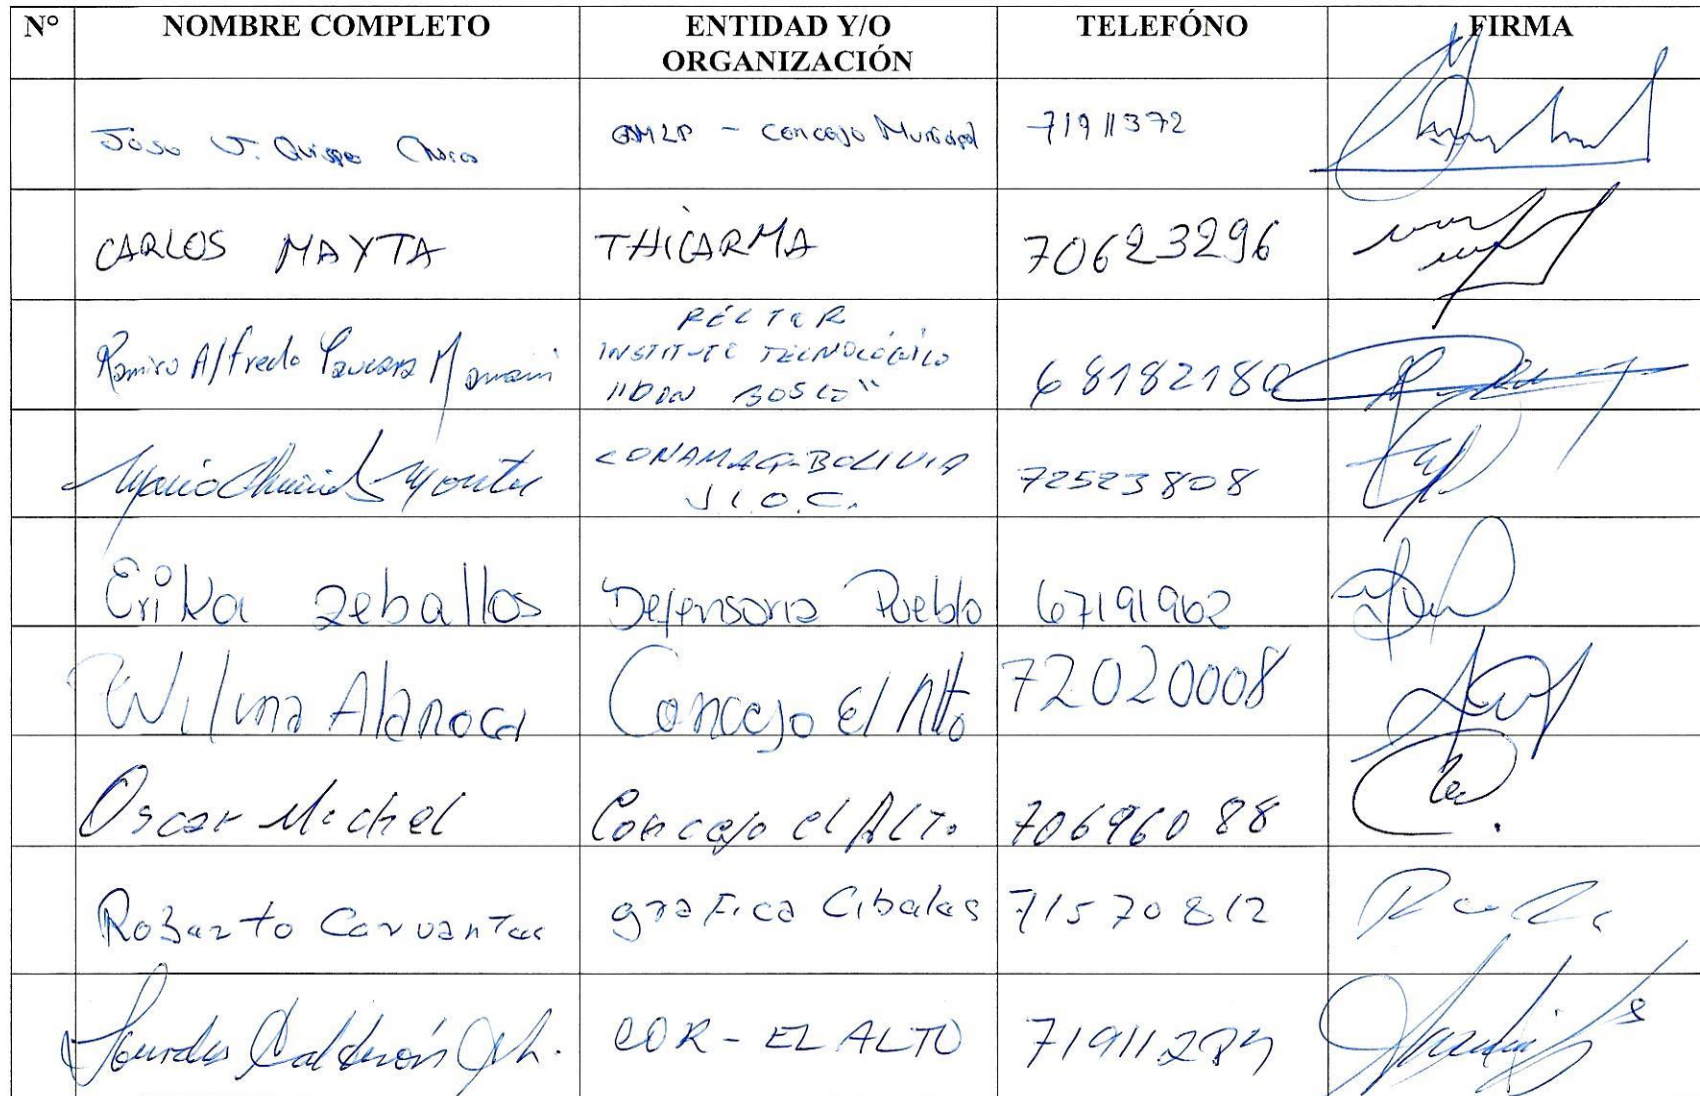 N° NOMBRE COMPLETO ENTIDAD Y/O ORGANIZACIÓN TELEFÓNO FIRMA
José J. Quispe GMLP - Concejo Municipal 71911372
CARLOS MAYTA THICARMA 70623296
Ramiro Alfredo Paucara Mamani RECTOR INSTITUTO TECNOLÓGICO "DON BOSCO" 68182180
Mario CONAMAQ-BOLIVIA J.I.O.C. 72523808
Erika Zeballos Defensoria Pueblo 67191962
Wilma Alanoca Concejo El Alto 72020008
Oscar Michel Concejo el ALTO 70696088
Roberto Cervantes grafica Cibeles 71570812
Lourdes Calderón Ch. COR - EL ALTO 71911284